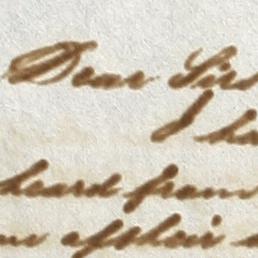 Dear Sirs
I ha
heard from
of their